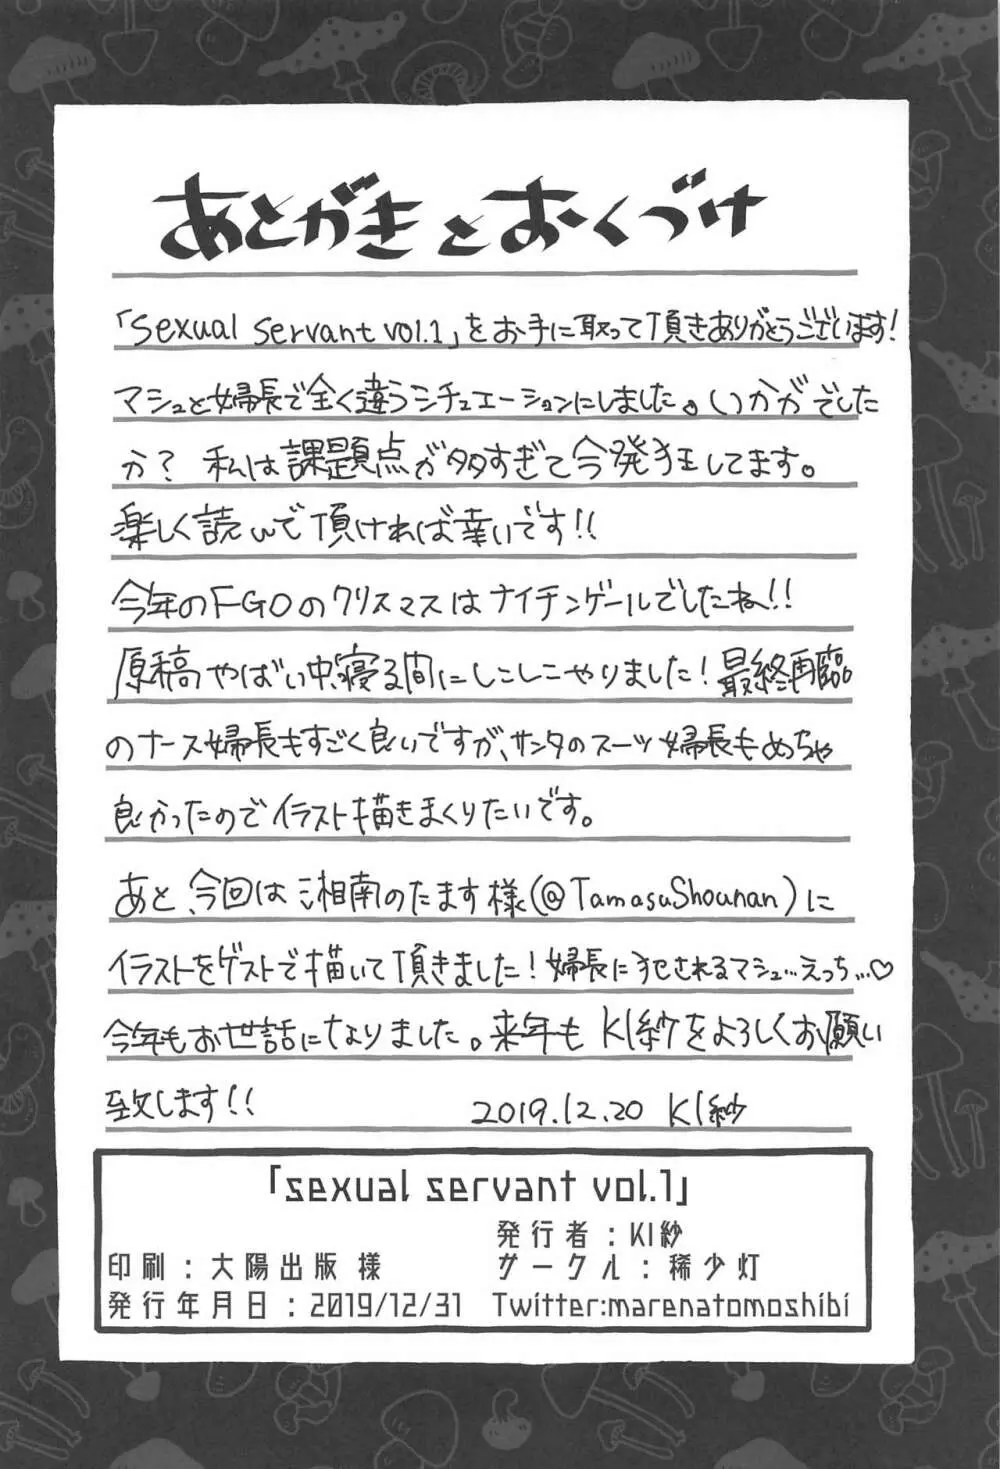 あとがきとおくづけ
「sexual servant vol.1」をお手に取って頂きありがとうございます!
マシュと婦長で全く違うシチュエーションにしました。いかがでした
か? 私は課題点が多すぎて今発狂してます。
楽しく読んで頂ければ幸いです!!
今年のFGOのクリスマスはナイチンゲールでしたね!!
原稿やばい中、寝る間にしこしこやりました!最終再臨
のナース婦長もすごく良いですが、サンタのスーツ婦長もめちゃ
良かったのでイラスト描きまくりたいです。
あと、今回は湘南のたます様(@TamasuShounan)に
イラストをゲストで描いて頂きました!婦長に犯されるマシュ…えっち…♡
今年もお世話になりました。来年もKI紗をよろしくお願い
致します!!
2019.12.20 KI紗
「sexual servant vol.1」
発行者:KI紗
印刷:大陽出版 様 サークル:稀少灯
発行年月日:2019/12/31 Twitter:marenatomoshibi